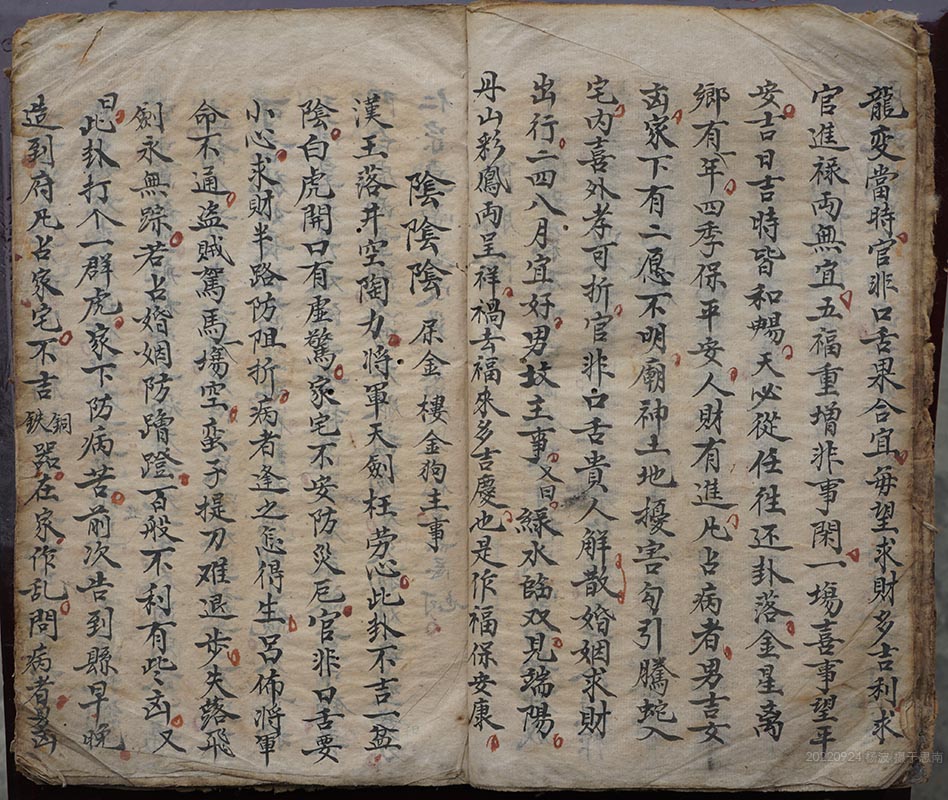 龍变當時官非口舌果合宜每望求財多吉利求
官進禄両無宜五福重增非事閑一塲喜事望平
安吉日吉時皆和暢天必從任徃还卦落金星离
鄉有年四季保平安人財有進凡占病者男吉女
凶家下有二愿不明廟神土地擾害勾引騰蛇入
宅内喜外孝可折官非口舌貴人解散婚姻求財
出行二四八月宜好男坟主事又曰緑水臨双見端陽
丹山彩鳳両呈祥禍去福來多吉慶也是作福保安康
陰陰陰 尿金樓金狗主事
漢王落井空陶力将軍天劍枉劳心此卦不吉一盆
陰白虎開口有虚驚家宅不安防災厄官非口舌要
小心求財半路防阻折病者逢之怎得生吕佈將軍
命不通盗賊駕馬塲空蛮子提刀难退步失落飛
劍永無踪若占婚姻防蹭蹬百般不利有些凶又
曰此卦打个一群虎家下防病苦前次告到縣早晚
造到府凡占家宅不吉銅鉄器在家作乱問病者凶
20220924 杨波 摄于思南